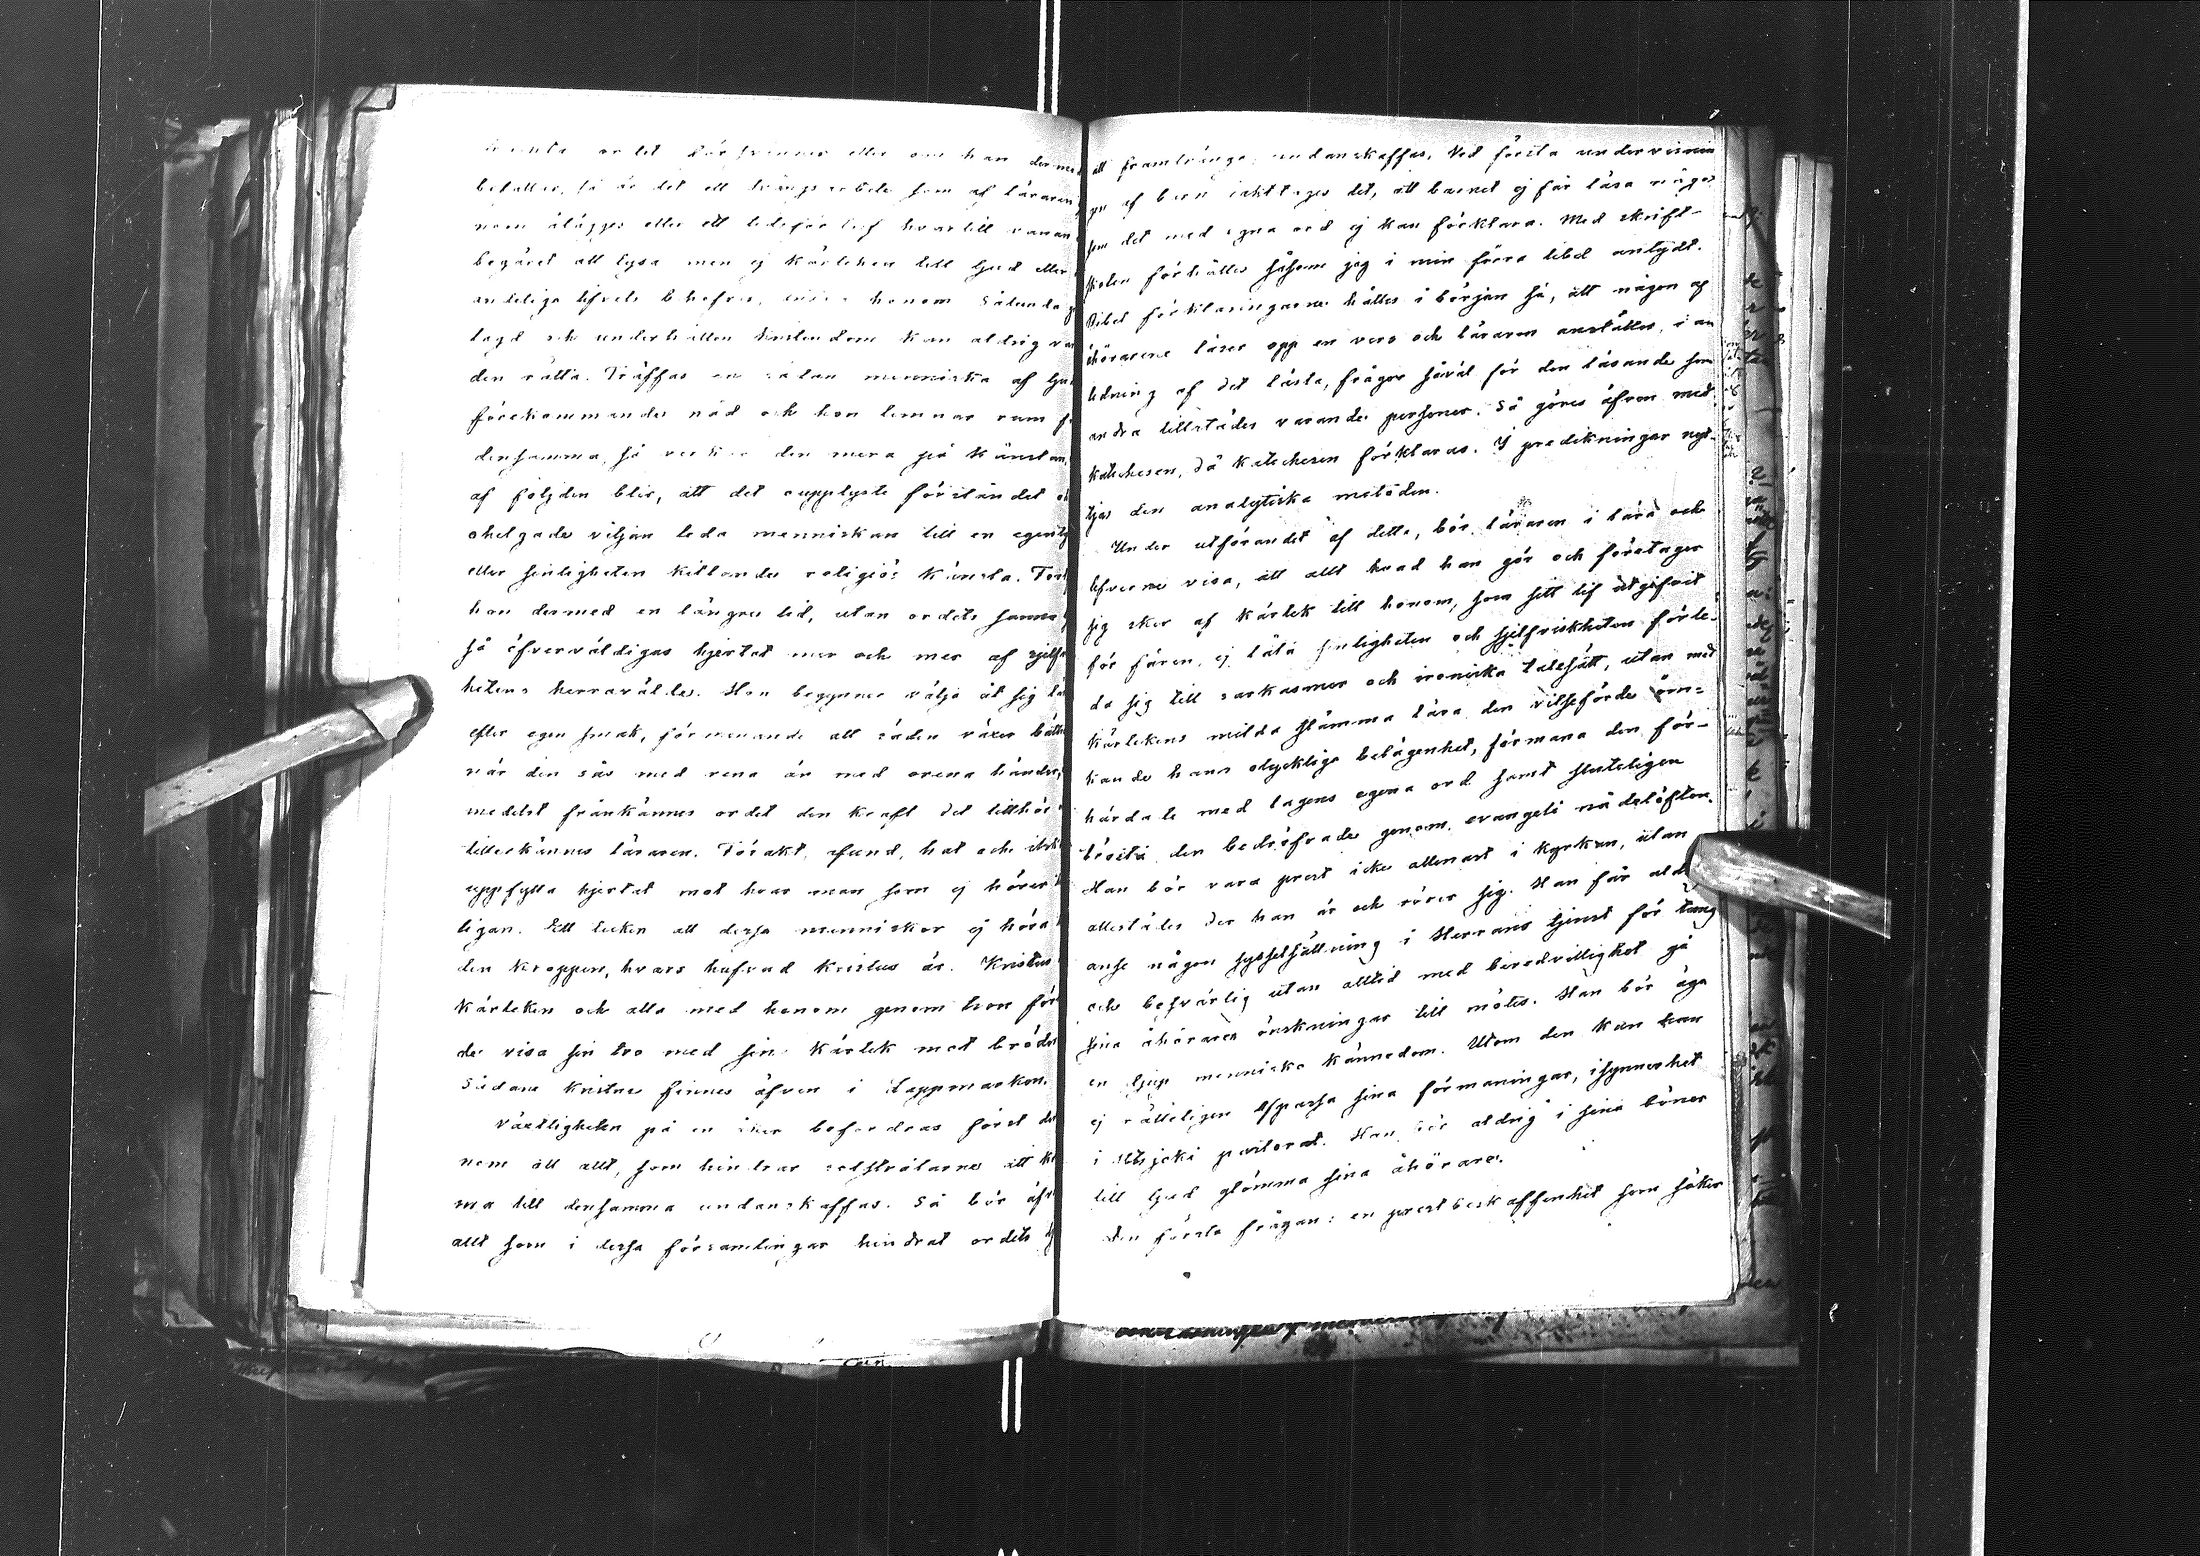 ordet hör finnes eller om han dermed
befattar, så är det ett tvångsarbete som af läraren
nom ålägges eller ett tidsfördrif hvartill vanan
begäret att lysa men ej kärleken till Gud eller
andeliga lifvets behof honom Sålunda
lagd och underhållen kristendom kan aldrig var
den rätta. Träffas en sådan menniska af Gu
förekommande nåd och hon lemnar rum f
densamma, så verkar den mera på känslan,
af följden blir, att det oupplyste förståndet o
ohelgade viljan leda menniskan till en egent
eller sinligheten kittlande religiös känsla. Fort
hon dermed en längre tid, utan ordets sanna
så öfverväldigas hjertat mer och mer af sjelf
hetens herravälde. Hon begynner välja åt sig lä
efter egen smak, förmenande att säden växer bätt
när den sås med rena än med orena händer,
medelst frånkännes ordet den kraft det tillhör
tillerkännes läraren. Förakt, afund, hat och
uppfylla hjertat mot hvar man som ej hörer
ligan. Ett tecken att dessa menniskor ej höra
den kroppen, hvars hufvud Kristus är. Kristus
Kärleken och alla med honom genom tron för
de visa sin tro med sin kärlek mot bröder
Sådane kristne finnes äfven i Lappmarken.
Växtligheten på en åker befordras först de
nom att allt, som hindrar solstrålarne att k
ma till densamma undanskaffas. Så bör äfv
allt som i dessa församlingar hindrat ordets
att framtränga, undanskaffas. Ved första undervisnin
gen af barn iakttages det, att barnet ej får läsa något
som det med egna ord ej kan förklara. Med skrift-
skolan förhålles såsom jag i min förra tibel antydt.
Bibel förklaringarne hålles i början så, att någon af
åhörarene läser opp en vers och läraren anställer, i an
ledning af det lästa, frågor såväl för den läsande som
andra tillstädes varande personer. Så göres äfven med
katechesen, då katechesen förklaras. I predikningar nyt-
tjas den analytiska metoden.
Under utförandet af detta, bör läraren i lära och
lefverne visa, att allt hvad han gör och företager
sig sker af kärlek till honom, som sitt lif utgifvit
för fåren, ej låta sinligheten och sjelfviskheten förle-
da sig till sarkasmer och ironiska talesätt, utan med
kärlekens milda stämma lära den vilseförde öm=
kande hans olyckliga belägenhet, förmana den för-
härdade med lagens egena ord samt sluteligen
trösta den bedröfvade genom evangeli nådelöften.
Han bör vara prest icke allenast i kyrkan, utan
allestädes der han är och rörer sig. Han får aldrig
anse någon sysselsättning i Herrans tjenst för tung
och besvärlig utan alltid med beredvillighet gå
sina åhörares önskningar till mötes. Han bör äga
en djup mennisko kännedom. Utom den kan han
ej rätteligen afpassa sina förmaningar, isynnerhet
i Utsjoki pastorat. Han bör aldrig i sina böner
till Gud glömma sina åhörare.
Den första frågan: en prest beskaffenhet som söker